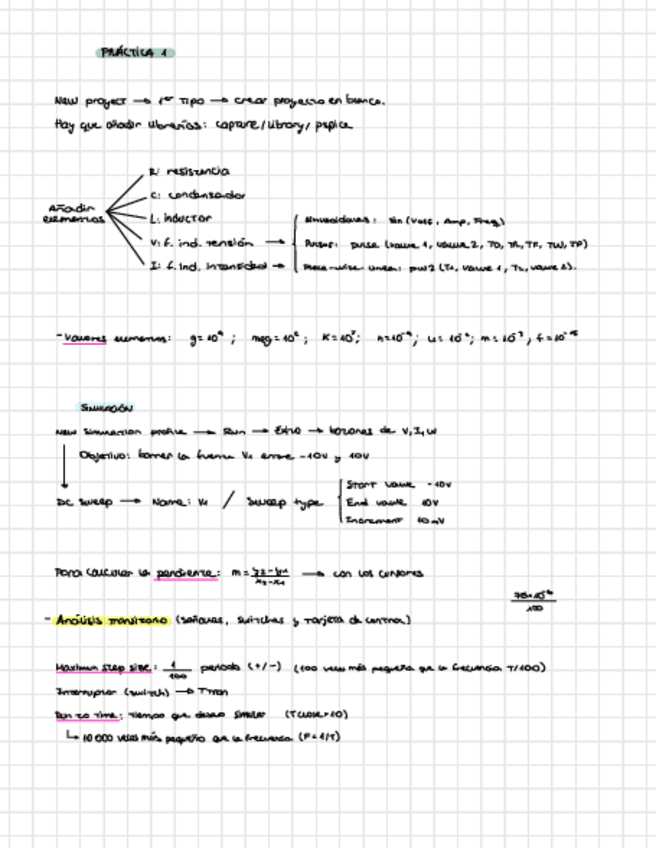 PRÁCTICA 1
New project → 1er Tipo → crear proyecto en blanco.
Hay que añadir librerías: capture/library/pspice
Añadir elementos
R: resistencia
C: condensador
L: inductor
V: f. ind. tensión →
I: f. ind. intensidad →
Sinusoidales: sin (Voff, Amp, Freq)
Pulsos: pulse (value 1, value 2, TD, TR, TF, TW, TP)
Piece-wise linear: pw2 (T1, value 1, T2, value 2).
- Valores elementos: g=10⁹; meg=10⁶; K=10³; n=10⁻⁹; u=10⁻⁶; m=10⁻³, f=10⁻¹⁵
SIMULACIÓN
New simulation profile → Run → Éxito → botones de V, I, W
Objetivo: barrer la fuente V1 entre -10V y 10V
DC Sweep → Name: V1 / Sweep type
Start value -10V
End value 10V
Increment 10mV
Para calcular la pendiente: m = y2-y1/x2-x1 → con los cursores
- Análisis transitorio (señales, switches y tarjeta de control)
Maximum step size: 1/100 periodo (+/-) (100 veces más pequeña que la frecuencia T/100)
Interruptor (switch) → Tran
Run to Time: tiempo que deseo simular
↳ 10 000 veces más pequeño que la frecuencia (F=1/T)